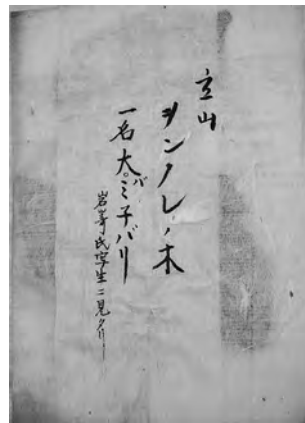 立山
ヲンノレノ木
一名大バミ子バリ
岩嵜氏写生ニ見タリ